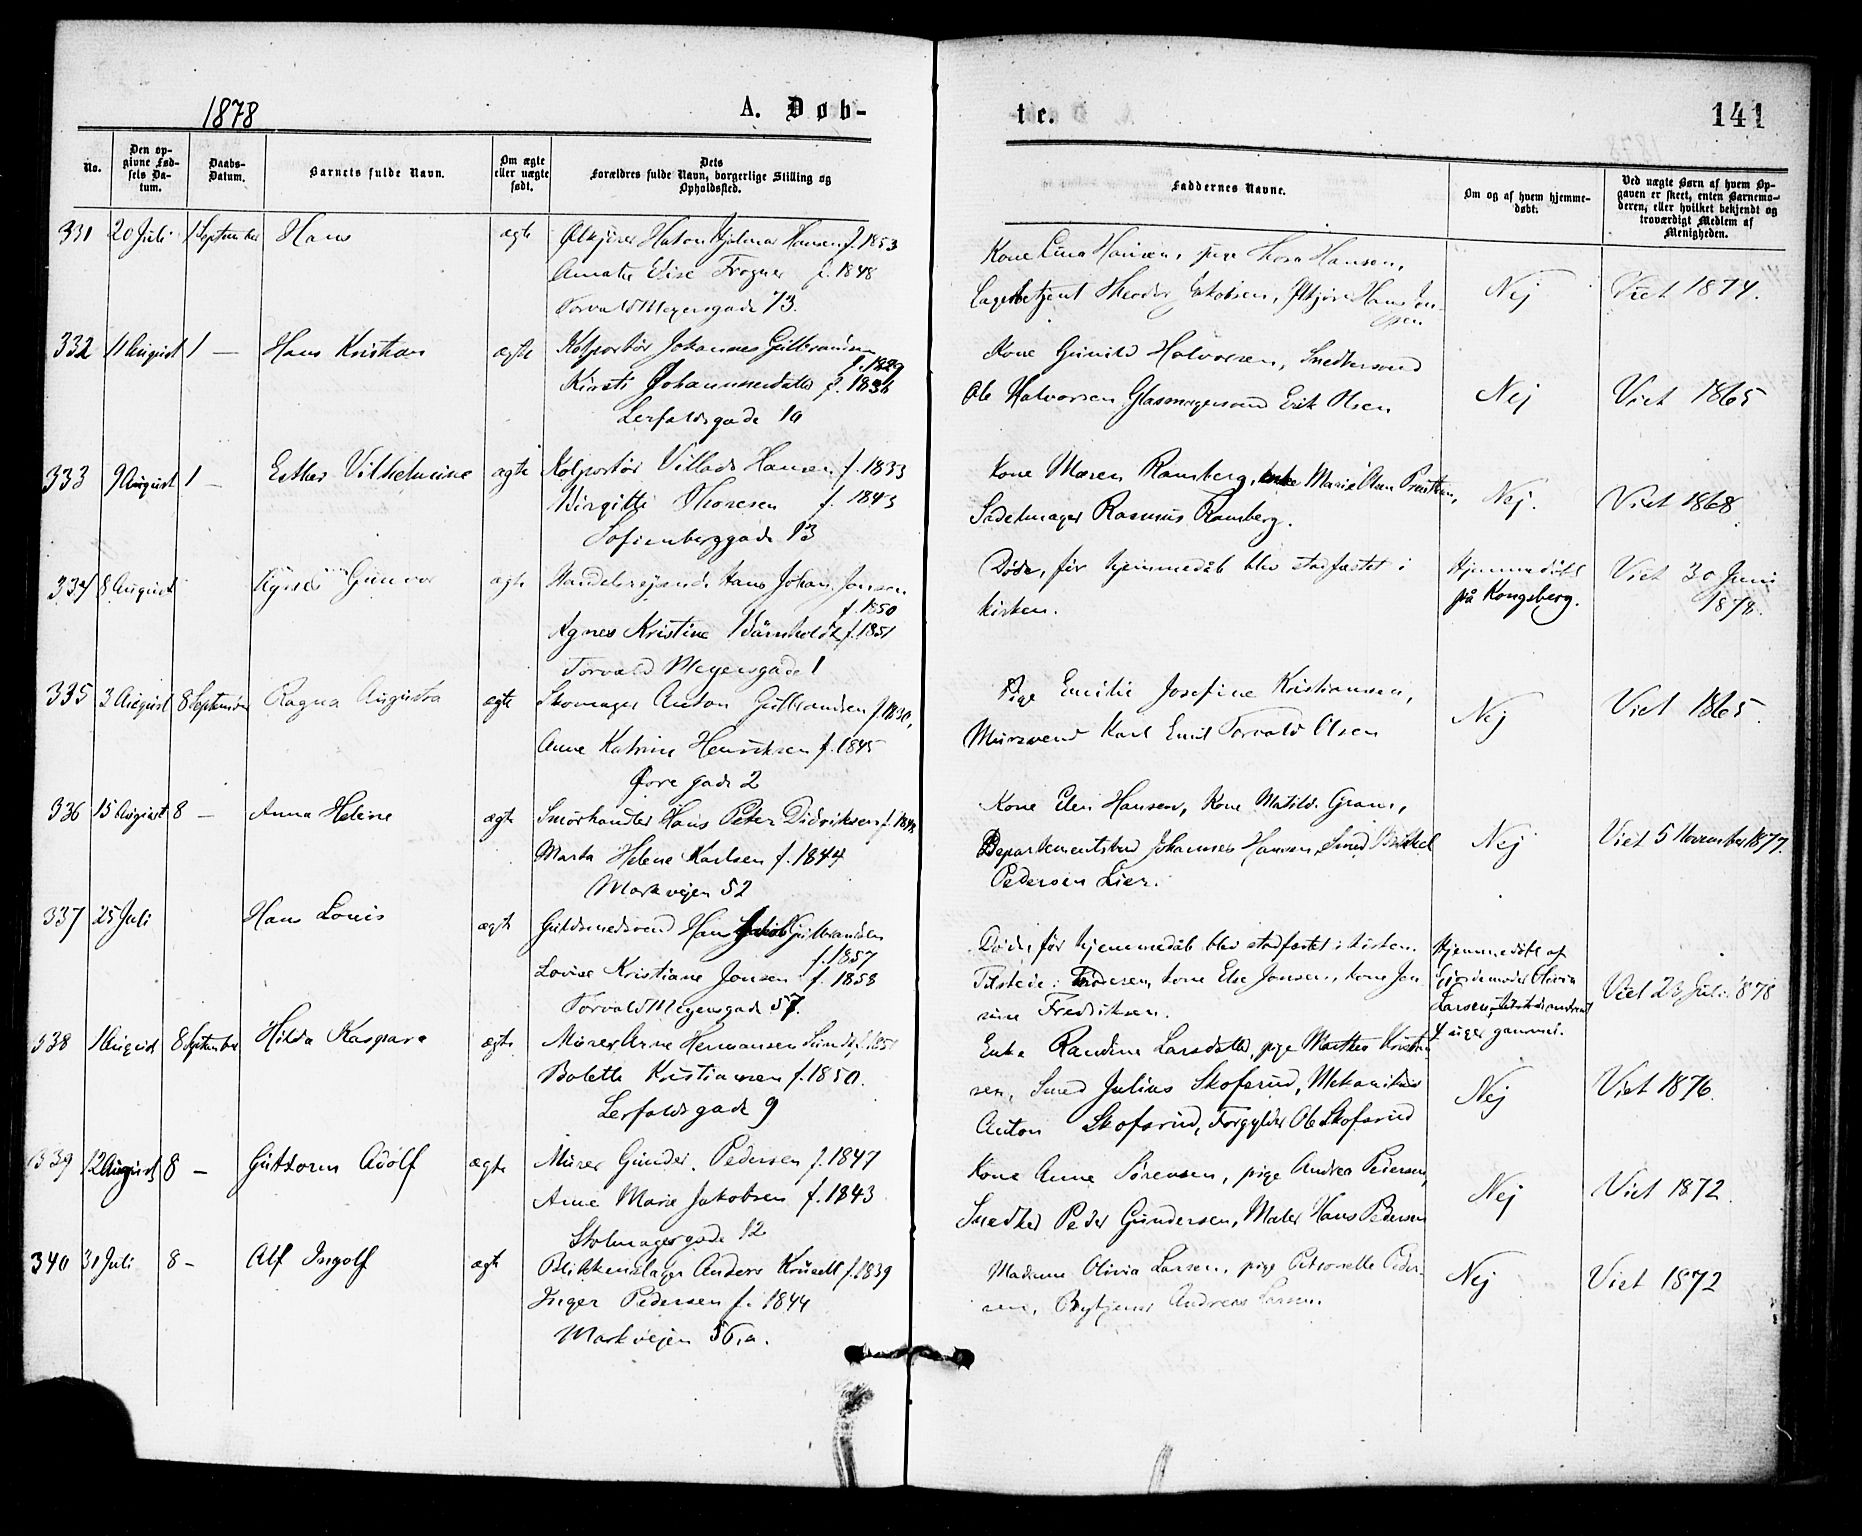 1878 A. Døb-
No.
Den op-
givne Fød-
sels Da-
tum.
Daabs-
Datum.
Barnets fulde Navn.
Om ægte
eller uægte
født.
Dets
Forældres fulde Navn, borgerlige Stilling og
Opholdssted.
331 20 Juli 1 September Hans ægte Hakon Hjalmar Hansen f. 1853
Elise Frogner f. 1848
Torvald Meyersgade 73.
332 11 August 1 — Hans Kristian ægte Kolportör Johannes Gulbrandsen
f. 1829
Kirsti Johannesdatter f. 1836
Lerfaldsgade 10
333 9 August 1 — Esther Vilhelmine ægte Kolportör Villads Hansen f. 1833
Birgitte Thoresen f. 1843
Sofienberggade 13
334 8 August Gunvor ægte Handelsrejsende Hans Johan Jonsen
f. 1850
Agnes Kristine f. 1851
Torvald Meyersgade 1
335 3 August 8 September Ragna Augusta ægte Skomager Anton Gulbrandsen f. 1830,
Anne Katrine Henriksen f. 1845
Øvre gade 2
336 15 August 8 — Anna Helene ægte Smörhandler Hans Peter Didriksen
Marta Helene Karlsen f. 1844
Markvejen 52
337 25 Juli Hans Louis ægte Guldsmedsvend Hans Gulbrandsen
f. 1857
Lovise Kristiane Jonsen f. 1858
Torvald Meyersgade 57.
338 1 August 8 September Hilda Kaspara ægte Murer Arne Hermansen
Bolette Kristiansen f. 1850.
Lerfaldsgade 9
339 12 August 8 — Guttorm Adolf ægte Murer Gunder Pedersen f. 1847
Anne Marie Jakobsen f. 1843
Skolmagergade 12
340 31 Juli 8 — Alf Ingolf ægte Blikkenslager Anders f. 1839
Inger Pedersen f. 1844
Markvejen 56,a.
te. 141
Faddernes Navne.
Om og af hvem hjemme-
døbt.
Ved uægte Børn af hvem Op-
gaven er skeet, enten Barnemo-
deren, eller hvilket bekjendt og
troværdigt Medlem af
Menigheden.
Kone Lina Hansen, pige Thora Hansen,
Lagerbetjent Theodor Jakobsen, Hans Nej Viet 1874.
Kone Gunild Halvorsen, Snedkersvend
Ole Halvorsen, Glasmagersvend Erik Olsen Nej Viet 1865
Kone Maren Ramberg, enke Marie Olsen
Sadelmager Rasmus Ramberg. Nej. Viet 1868
Döde, för hjemmedåb blev stadfæstet i
kirken.
Hjemmedöbt
på Kongsberg.
Viet 30 Juni
1878.
Pige Emilie Josefine Kristiansen,
Mursvend Karl Emil Torvald Olsen Nej Viet 1865.
Kone Elen Hansen, Kone Matilde Gram,
Departementsbud Johannes Hansen, Smed
Pedersen Lier. Nej Viet 5 November 1877.
Döde, för hjemmedåb blev stadfæstet i kirken.
Tilstede: kone Else Jonsen, kone
Fredriksen.
Hjemmedöbt af
Gjordemoder Olivia
Larsen,
4 uger gammel.
Viet 23 Juli 1878
Enke Randine Larsdatter, pige Marthea
Smed Julius Skofsrud, Mekanikus
Anton Skofsrud, Forgylder Ole Skofsrud Nej Viet 1876.
Kone Anne Sörensen, pige Andrea Pedersen,
Snedker Peder Gundersen, Maler Hans Pedersen Nej Viet 1872.
Madame Olivia Larsen, pige Petronelle Peder-
sen, Andreas Larsen. Nej Viet 1872